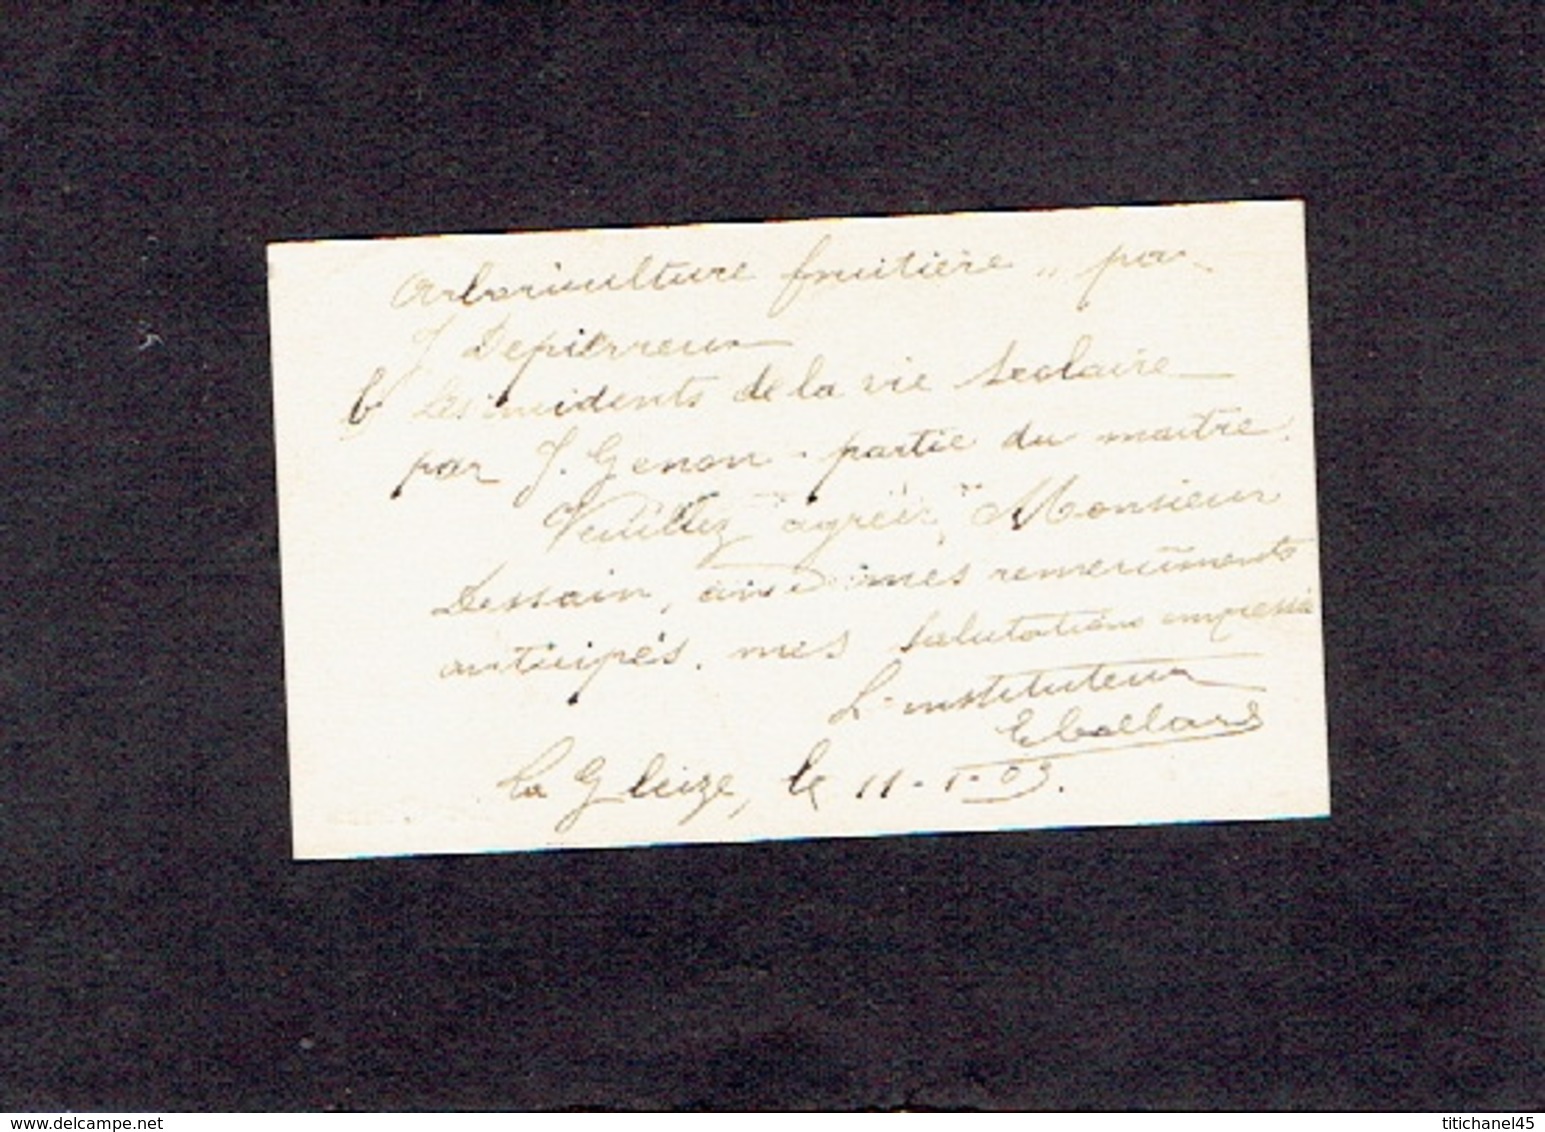 arboriculture fruitière „ par
J Depierreux
b Les incidents de la vie scolaire
par J. Genon - partie du maître.
Veuillez agréer, Monsieur
Dessain, avec mes remerciments
anticipés, mes salutations empressées
L'instituteur
La Gleize, le 11-1-09.
www.delcampe.net
titichanel45